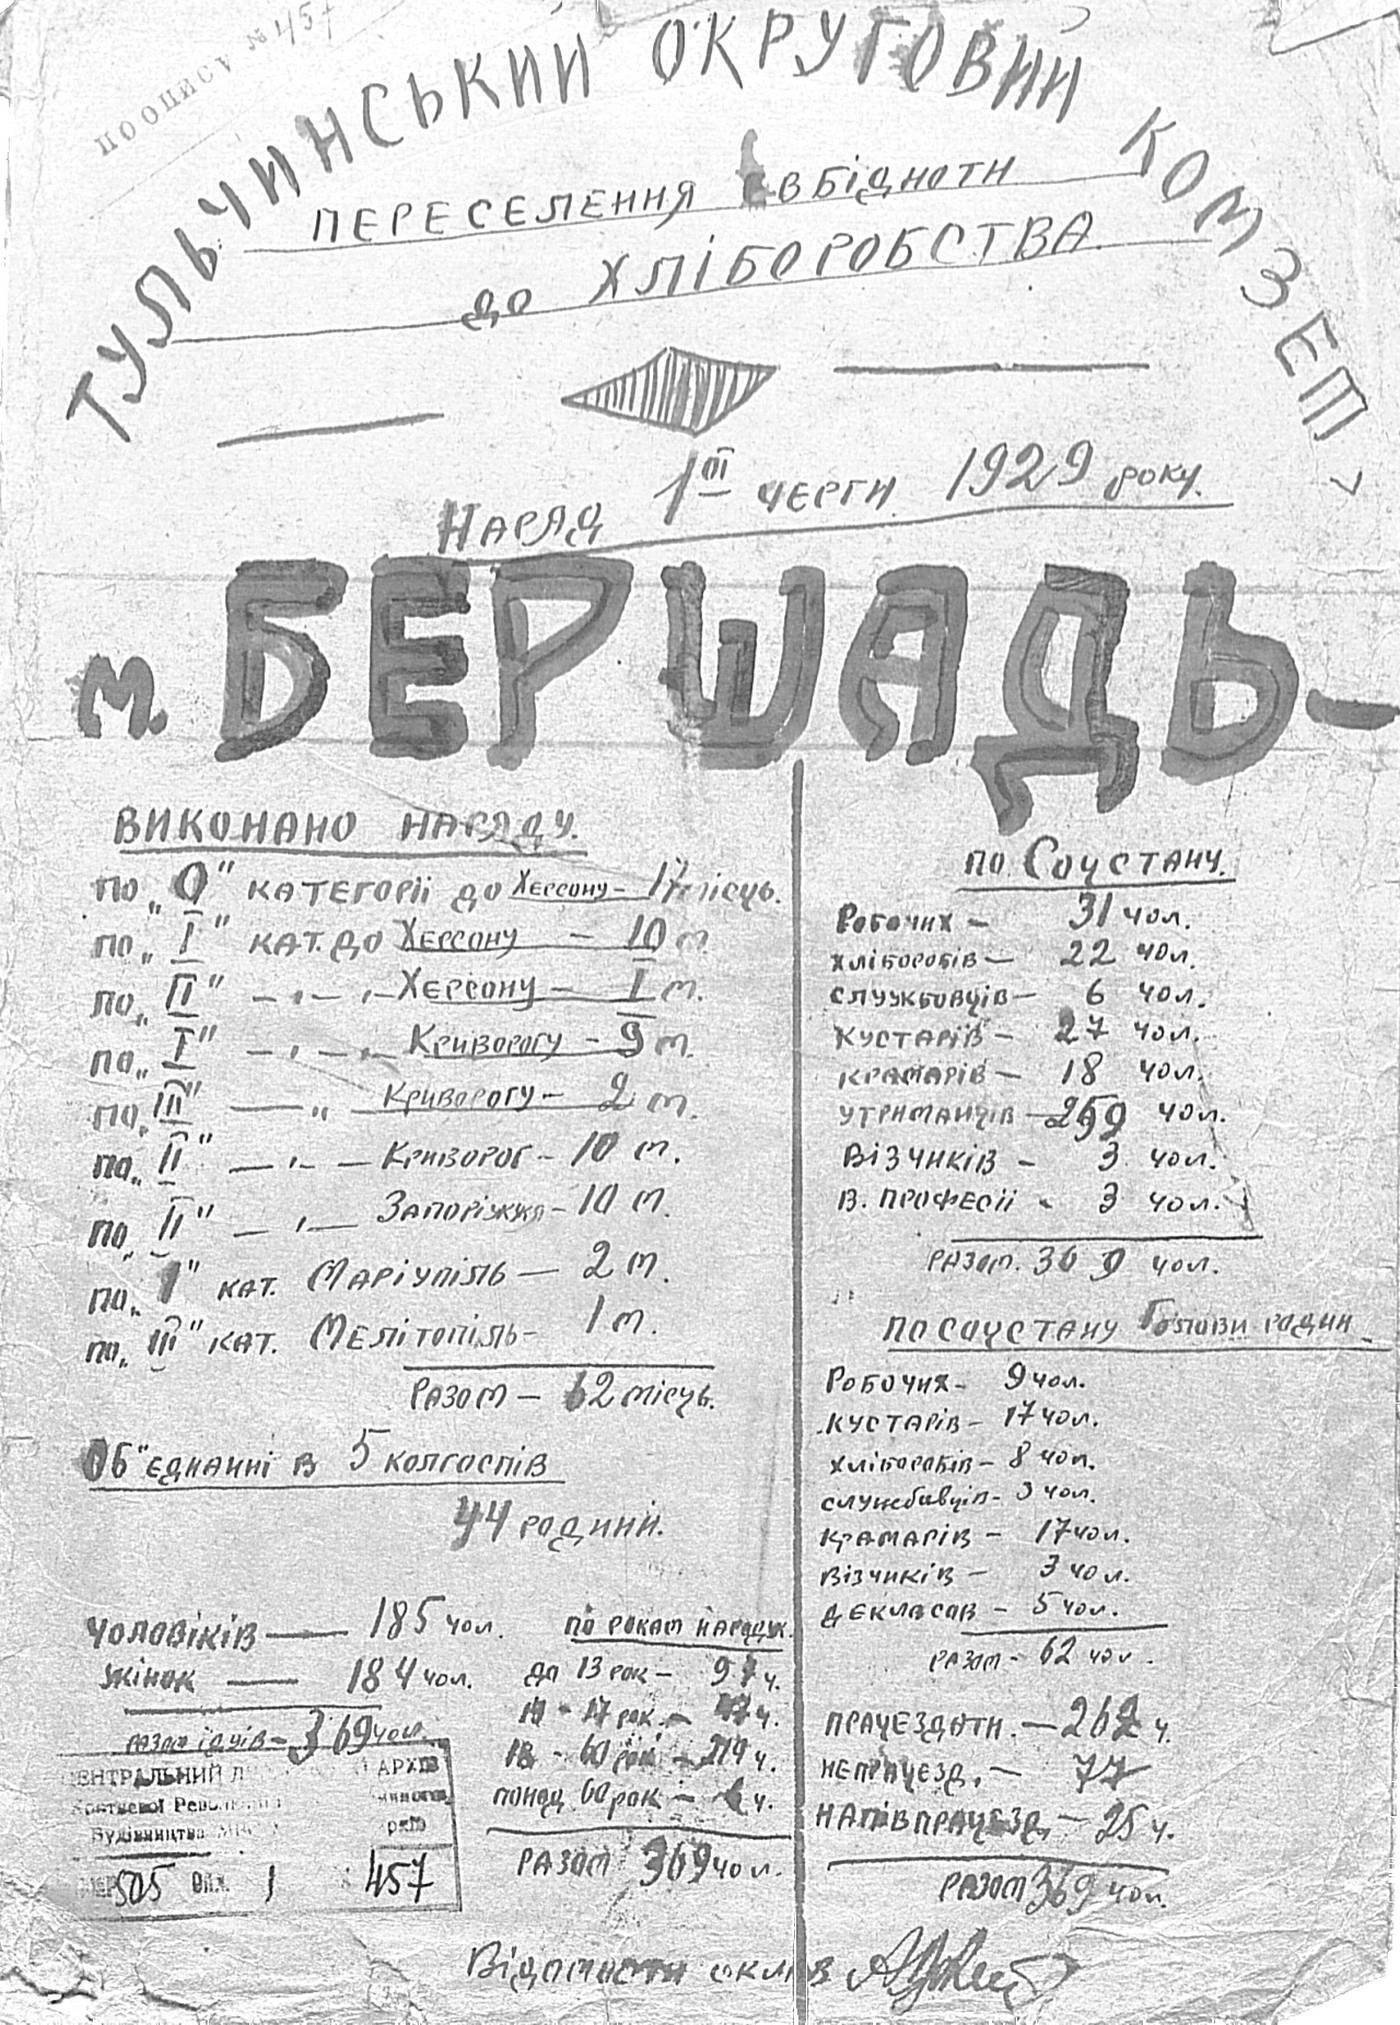 ПО ОПИСУ № 457
ТУЛЬЧИНСЬКИЙ ОКРУГОВИЙ КОМЗЕТ
ПЕРЕСЕЛЕННЯ ЄВБІДНОТИ
до ХЛІБОРОБСТВА
НАРЯД 1ої ЧЕРГИ 1929 року.
м. БЕРШАДЬ-
ВИКОНАНО НАРЯДУ.
по "0" КАТЕГОРІЇ до ХЕРСОНУ - 17 місць.
по "I" КАТ. до ХЕРСОНУ - 10 м.
по "II" - " - " - ХЕРСОНУ - I м.
по "I" - " - " - КРИВОРОГУ - 9 м.
по "III" - " - КРИВОРОГУ - 2 м.
по "II" - " - КРИВОРОГ - 10 м.
по "II" - " - ЗАПОРІЖЖЯ - 10 м.
по "I" КАТ. МАРІУПІЛЬ - 2 м.
по "III" КАТ. МЕЛІТОПІЛЬ - 1 м.
РАЗОМ - 62 місць.
ОБ"ЄДНАННІ В 5 КОЛГОСПІВ
44 РОДИНИ.
ЧОЛОВІКІВ - 185 чол.
ЖІНОК - 184 чол.
РАЗОМ їдців - 369 чол.
ПО РОКАМ НАРОДЖ.
до 13 рок -
- 17 рок -
18 - 60 рок - 219 ч.
понад 60 рок -
РАЗОМ 369 чол.
ПО СОЦСТАНУ.
РОБОЧИХ - 31 чол.
ХЛІБОРОБІВ - 22 чол.
СЛУЖБОВЦІВ - 6 чол.
КУСТАРІВ - 27 чол.
КРАМАРІВ - 18 чол.
УТРИМАНЦІВ - 259 чол.
ВІЗЧИКІВ - 3 чол.
В. ПРОФЕСІЇ - 3 чол.
РАЗОМ. 369 чол.
ПО СОЦСТАНУ Голови родин
РОБОЧИХ - 9 чол.
КУСТАРІВ - 17 чол.
ХЛІБОРОБІВ - 8 чол.
СЛУЖБОВЦІВ - 3 чол.
КРАМАРІВ - 17 чол.
ВІЗЧИКІВ - 3 чол.
ДЕКЛАСОВ - 5 чол.
РАЗОМ - 62 чол.
ПРАЦЕЗДАТН. - 262 ч.
НЕПРАЦЕЗД. - 77
НАПІВПРАЦЕЗД - 25 ч.
РАЗОМ 369 чол.
ЦЕНТРАЛЬНИЙ АРХІВ
Будівництва
505 ОП. 1 457
Відомости склав